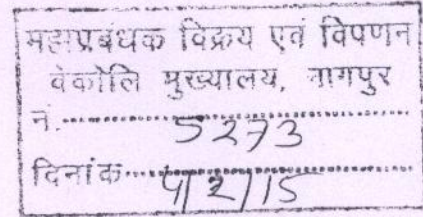 महाप्रबंधक विक्रय एवं विपणन
वेकोलि मुख्यालय, नागपुर
नं. 5273
दिनांक 4/2/15